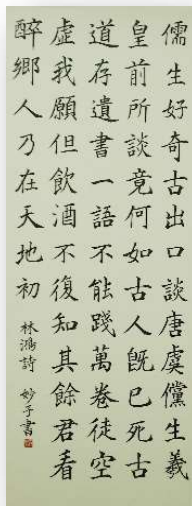 儒生好奇古出口談唐虞儻生義
皇前所談竟何如古人既已死古
道存遺書一語不能踐萬卷徒空
虛我願但飲酒不復知其餘君看
醉鄉人乃在天地初
林鴻詩 妙子書